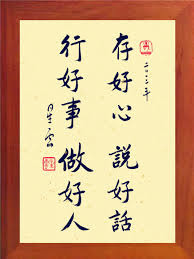 二〇一二年
存好心 說好話
行好事 做好人
星雲